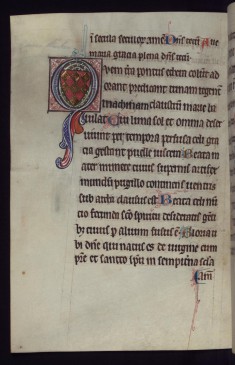 in secula seculorum amen Dns tecū Aue
maria gracia plena dns tecū
Quem tra pontus ethera colunt ad
orant predicant trinam regent
machinam claustrum marie ba
iulat Cui luna sol et omnia deser
uiunt per tempora perfusa celi gra
cia gestant puelle uiscera Beata m
ater munere cuius supernus artifex
mundum pugillo continens uentris
sub archa clausus est Beata celi nū
cio fecunda sco spiritu desideratus gēti
bus cuius p aluum fusus ē Gloria ti
bi dne qui natus es de uirgine cum
pre et sancto spu in sempiterna scla
Am